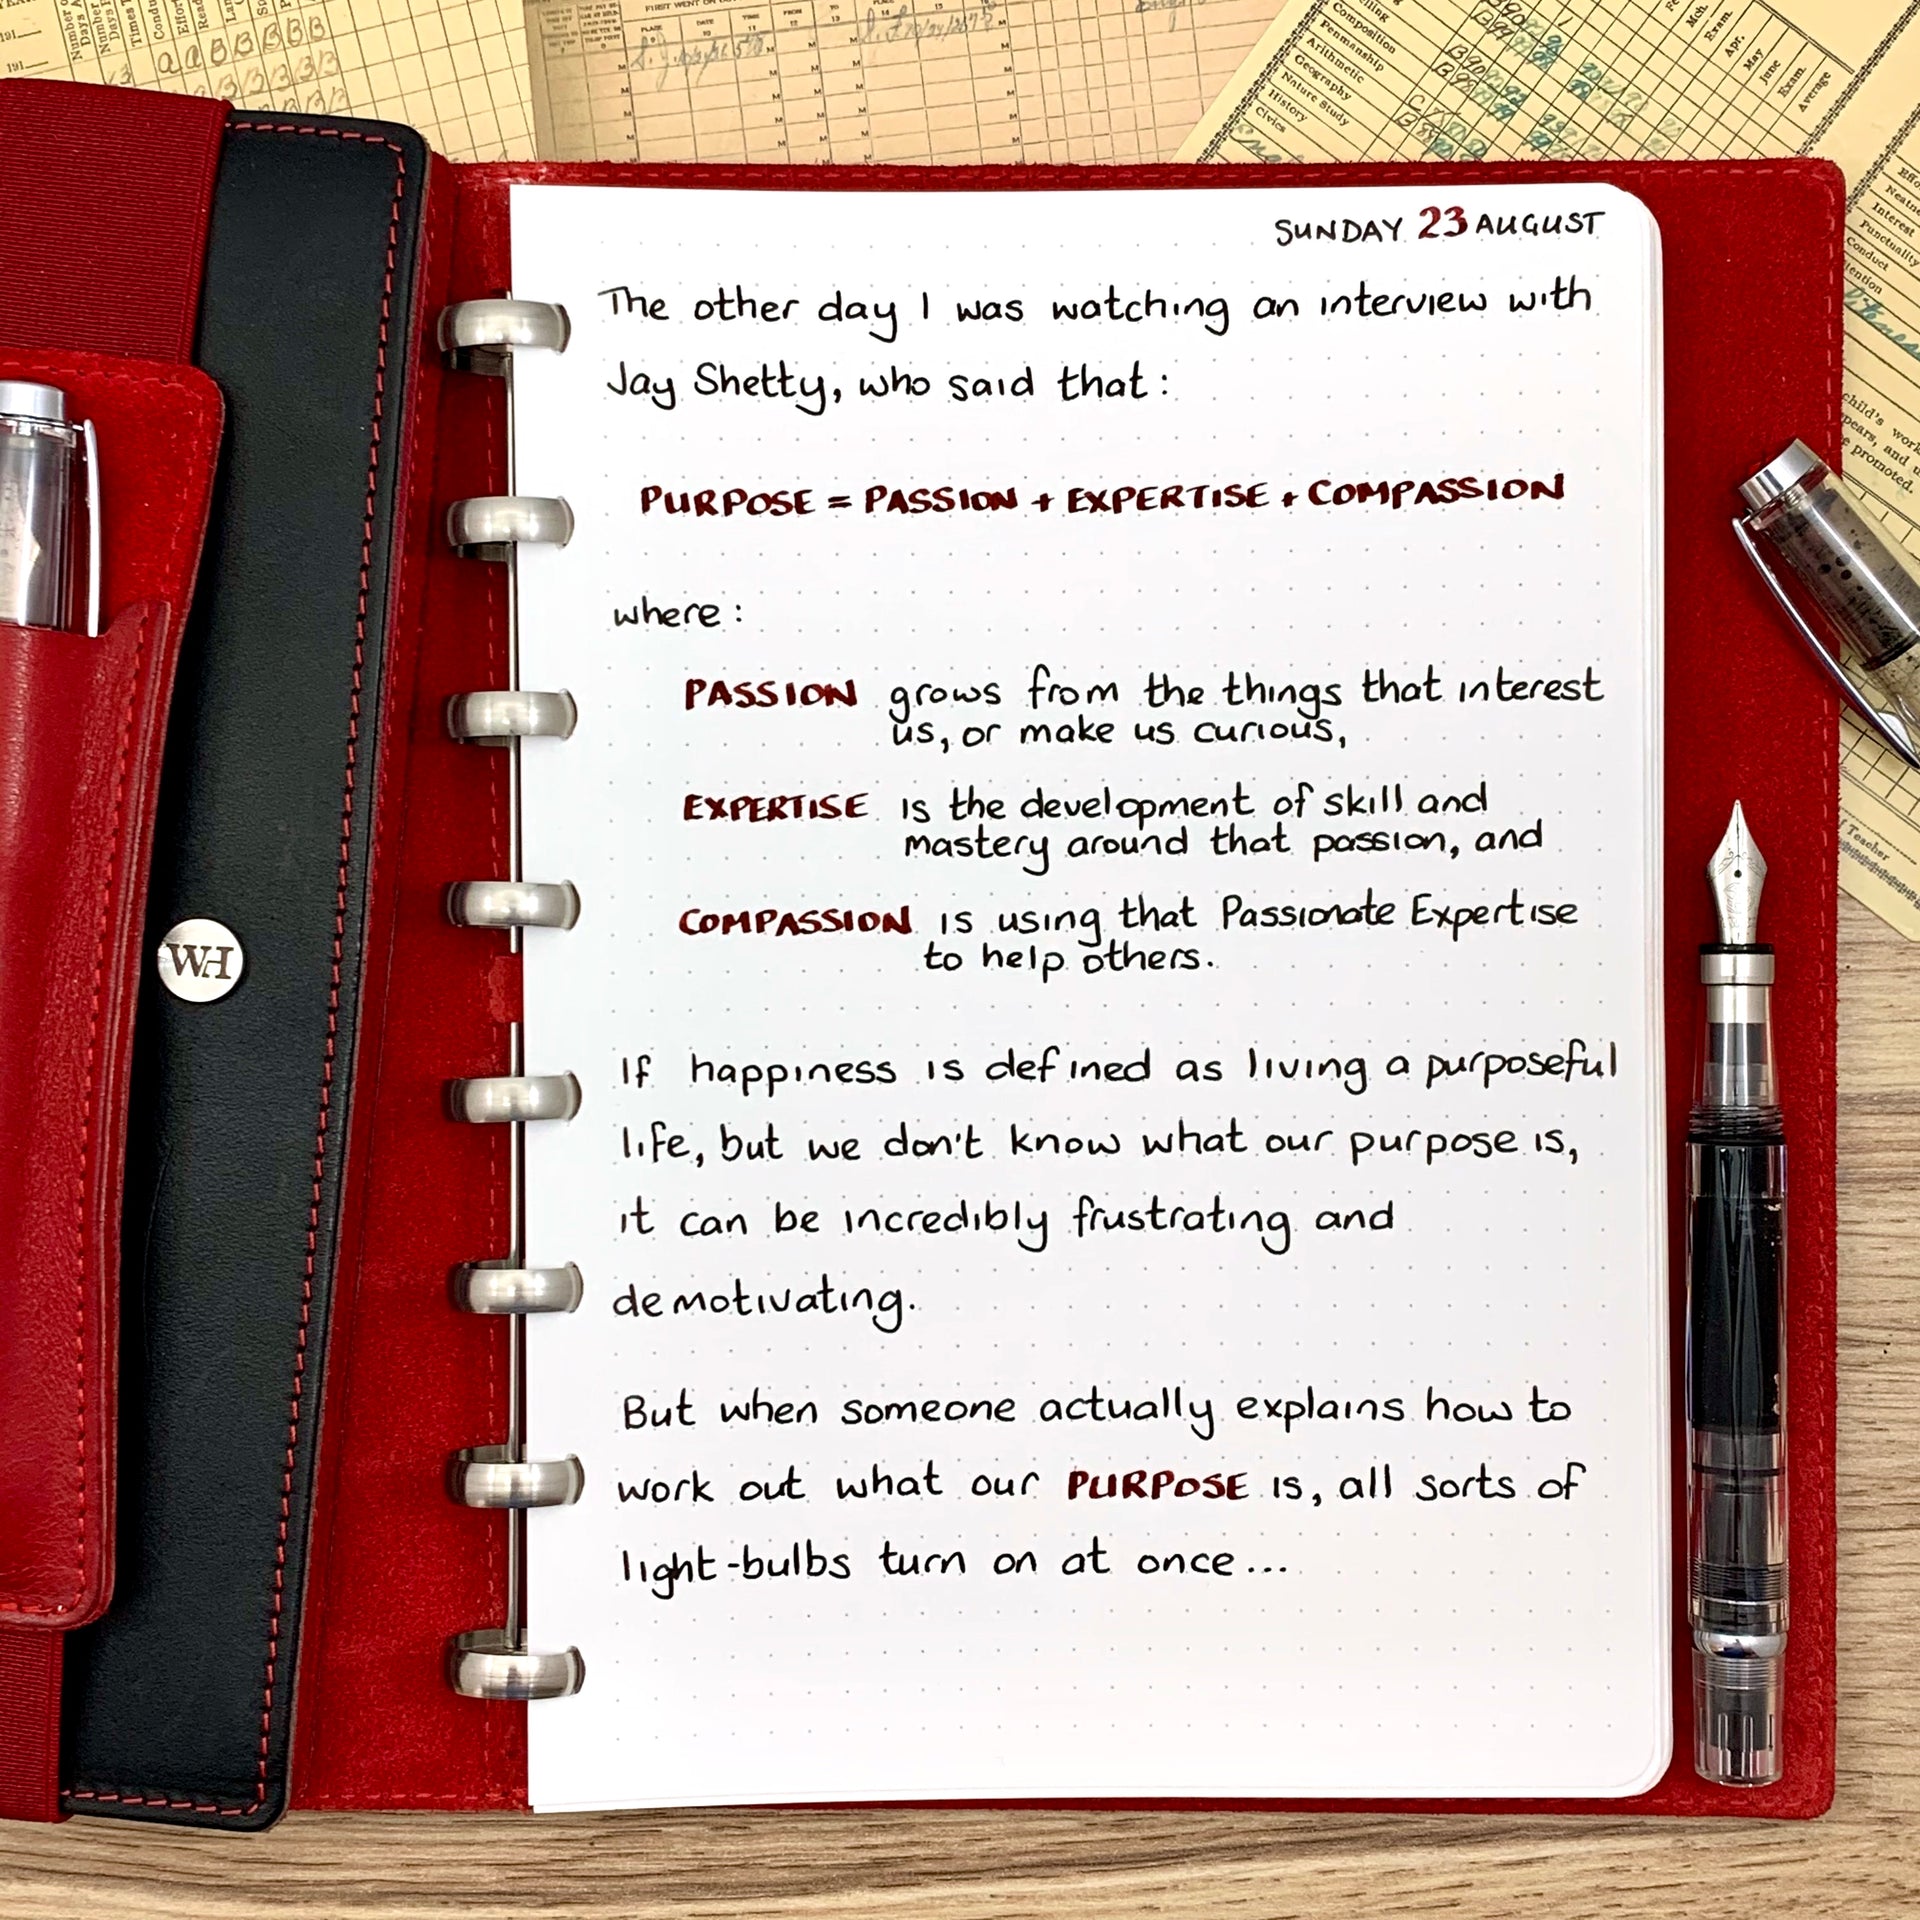 SUNDAY 23 AUGUST
The other day I was watching an interview with
Jay Shetty, who said that:
PURPOSE = PASSION + EXPERTISE + COMPASSION
where:
PASSION grows from the things that interest
us, or make us curious,
EXPERTISE is the development of skill and
mastery around that passion, and
COMPASSION is using that Passionate Expertise
to help others.
If happiness is defined as living a purposeful
life, but we don't know what our purpose is,
it can be incredibly frustrating and
demotivating.
But when someone actually explains how to
work out what our PURPOSE is, all sorts of
light-bulbs turn on at once...
WH
191
191
a a B B B B B
FIRST WENT ON
PLACE
DATE
TIME
FROM
TO
PLACE
10
11
12
13
14
15
Composition
Penmanship
Arithmetic
Geography
Nature Study
History
Civics
Mch.
Exam.
Apr.
May
June
Exam.
Average
Interest
Punctuality
Conduct
child's work
pears, and
promoted.
Teacher